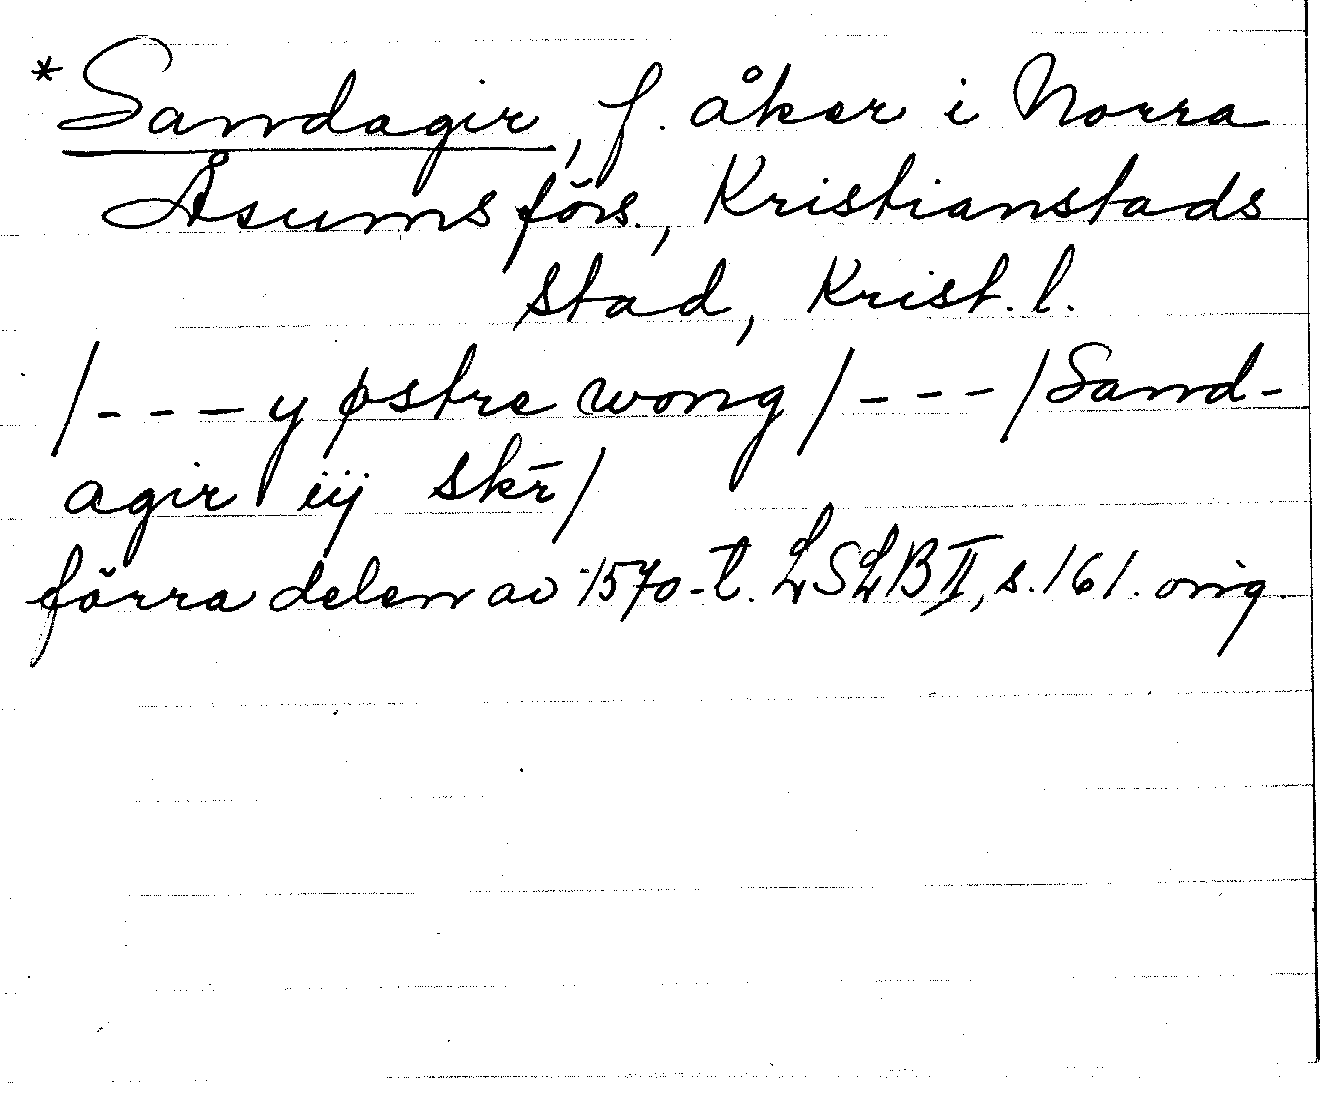 *Sandagir, f. åker i Norra
Åsums förs., Kristianstads
stad, Krist. l.
/---y østre wong /---/Sand-
agir iij skr̄/
förra delen av 1570-t. LSLB II, s. 161. orig.